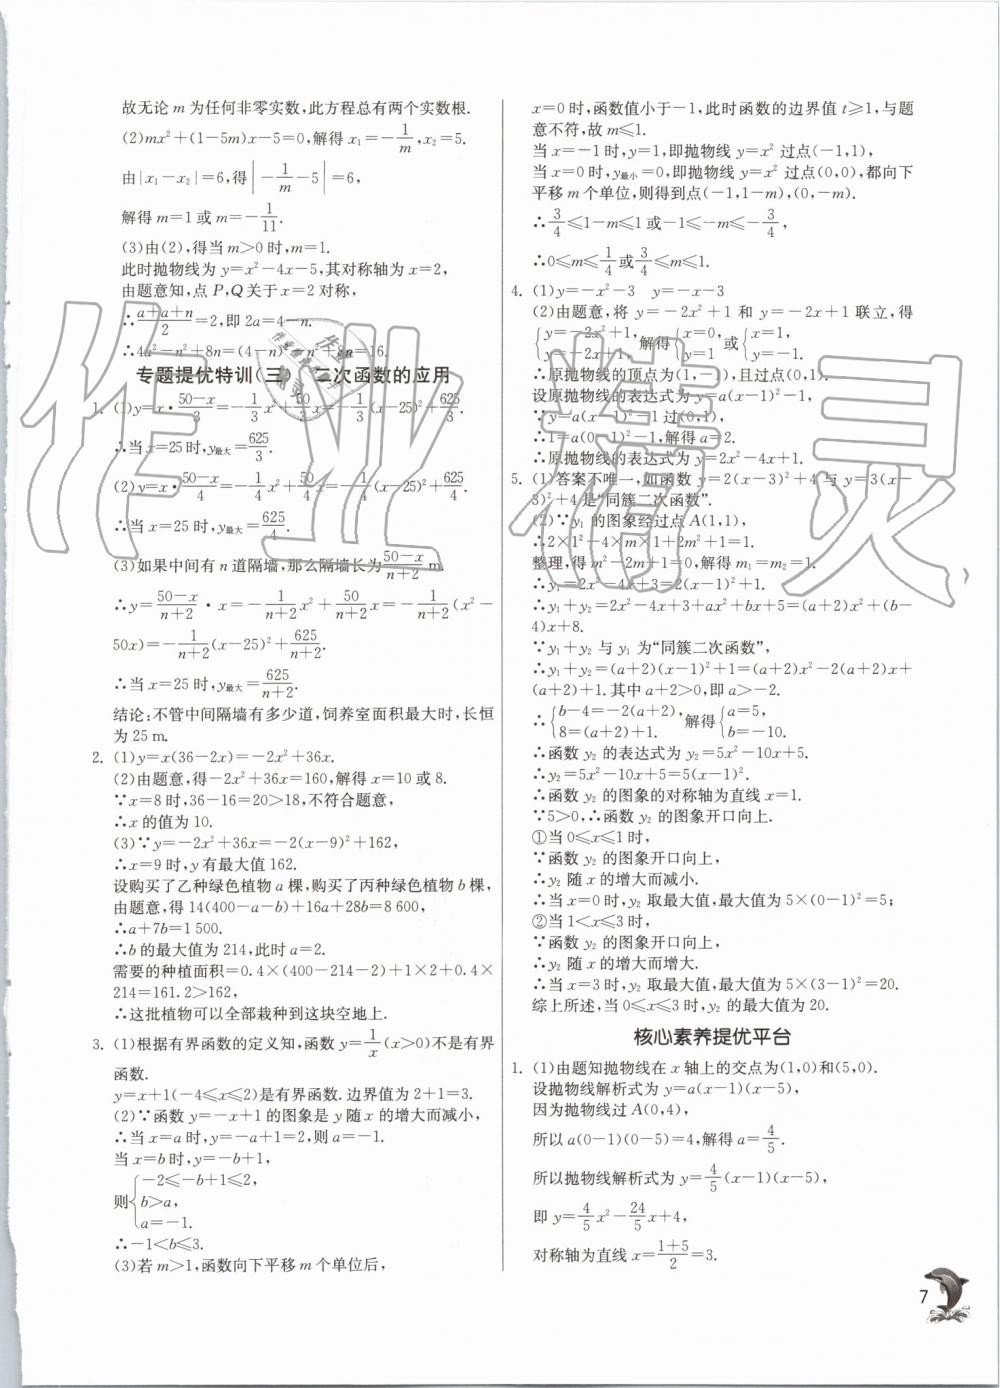 故无论 m 为任何非零实数,此方程总有两个实数根.
(2)mx²+(1-5m)x-5=0,解得 x₁=-1/m,x₂=5.
由|x₁-x₂|=6,得|-1/m-5|=6,
解得 m=1 或 m=-1/11.
(3)由(2),得当 m>0 时,m=1.
此时抛物线为 y=x²-4x-5,其对称轴为 x=2,
由题意知,点 P,Q 关于 x=2 对称,
∴(a+a+n)/2=2,即 2a=4-n.
∴4a²-n²+8n=(4-n)²-n²+8n=16.
专题提优特训(三) 二次函数的应用
1. (1)y=x·(50-x)/3=-1/3x²+50/3x=-1/3(x-25)²+625/3.
∴当 x=25 时,y最大=625/3.
(2)y=x·(50-x)/4=-1/4x²+50/4x=-1/4(x-25)²+625/4.
∴当 x=25 时,y最大=625/4.
(3)如果中间有 n 道隔墙,那么隔墙长为(50-x)/(n+2) m.
∴y=(50-x)/(n+2)·x=-1/(n+2)x²+50/(n+2)x=-1/(n+2)(x²-
50x)=-1/(n+2)(x-25)²+625/(n+2).
∴当 x=25 时,y最大=625/(n+2).
结论:不管中间隔墙有多少道,饲养室面积最大时,长恒
为 25 m.
2. (1)y=x(36-2x)=-2x²+36x.
(2)由题意,得-2x²+36x=160,解得 x=10 或 8.
∵x=8 时,36-16=20>18,不符合题意,
∴x 的值为 10.
(3)∵y=-2x²+36x=-2(x-9)²+162,
∴x=9 时,y 有最大值 162.
设购买了乙种绿色植物 a 棵,购买了丙种绿色植物 b 棵,
由题意,得 14(400-a-b)+16a+28b=8 600,
∴a+7b=1 500.
∴b 的最大值为 214,此时 a=2.
需要的种植面积=0.4×(400-214-2)+1×2+0.4×
214=161.2>162,
∴这批植物可以全部栽种到这块空地上.
3. (1)根据有界函数的定义知,函数 y=1/x(x>0)不是有界
函数.
y=x+1(-4≤x≤2)是有界函数.边界值为 2+1=3.
(2)∵函数 y=-x+1 的图象是 y 随 x 的增大而减小,
∴当 x=a 时,y=-a+1=2,则 a=-1.
当 x=b 时,y=-b+1,
则{-2≤-b+1≤2,
b>a,
a=-1.
∴-1<b≤3.
(3)若 m>1,函数向下平移 m 个单位后,
x=0 时,函数值小于-1,此时函数的边界值 t≥1,与题
意不符,故 m≤1.
当 x=-1 时,y=1,即抛物线 y=x² 过点(-1,1),
当 x=0 时,y最小=0,即抛物线 y=x² 过点(0,0),都向下
平移 m 个单位,则得到点(-1,1-m),(0,-m).
∴3/4≤1-m≤1 或-1≤-m≤-3/4,
∴0≤m≤1/4 或 3/4≤m≤1.
4. (1)y=-x²-3 y=-x-3
(2)由题意,将 y=-2x²+1 和 y=-2x+1 联立,得
{y=-2x²+1, y=-2x+1, 解得{x=0, y=1 或{x=1, y=-1.
∴原抛物线的顶点为(1,-1),且过点(0,1).
设原抛物线的表达式为 y=a(x-1)²-1,
∵y=a(x-1)²-1 过(0,1),
∴1=a(0-1)²-1,解得 a=2.
∴原抛物线的表达式为 y=2x²-4x+1.
5. (1)答案不唯一,如函数 y=2(x-3)²+4 与 y=3(x-
3)²+4 是"同簇二次函数".
(2)∵y₁ 的图象经过点 A(1,1),
∴2×1²-4×m×1+2m²+1=1.
整理,得 m²-2m+1=0,解得 m₁=m₂=1.
∴y₁=2x²-4x+3=2(x-1)²+1,
∴y₁+y₂=2x²-4x+3+ax²+bx+5=(a+2)x²+(b-
4)x+8.
∵y₁+y₂ 与 y₁ 为"同簇二次函数",
∴y₁+y₂=(a+2)(x-1)²+1=(a+2)x²-2(a+2)x+
(a+2)+1.其中 a+2>0,即 a>-2.
∴{b-4=-2(a+2), 8=(a+2)+1. 解得{a=5, b=-10.
∴函数 y₂ 的表达式为 y₂=5x²-10x+5.
∴y₂=5x²-10x+5=5(x-1)².
∴函数 y₂ 的图象的对称轴为直线 x=1.
∵5>0,∴函数 y₂ 的图象开口向上.
①当 0≤x≤1 时,
∵函数 y₂ 的图象开口向上,
∴y₂ 随 x 的增大而减小.
∴当 x=0 时,y₂ 取最大值,最大值为 5×(0-1)²=5;
②当 1<x≤3 时,
∵函数 y₂ 的图象开口向上,
∴y₂ 随 x 的增大而增大.
∴当 x=3 时,y₂ 取最大值,最大值为 5×(3-1)²=20.
综上所述,当 0≤x≤3 时,y₂ 的最大值为 20.
核心素养提优平台
1. (1)由题知抛物线在 x 轴上的交点为(1,0)和(5,0).
设抛物线解析式为 y=a(x-1)(x-5),
因为抛物线过 A(0,4),
所以 a(0-1)(0-5)=4,解得 a=4/5.
所以抛物线解析式为 y=4/5(x-1)(x-5),
即 y=4/5x²-24/5x+4,
对称轴为直线 x=(1+5)/2=3.
7
作业精灵